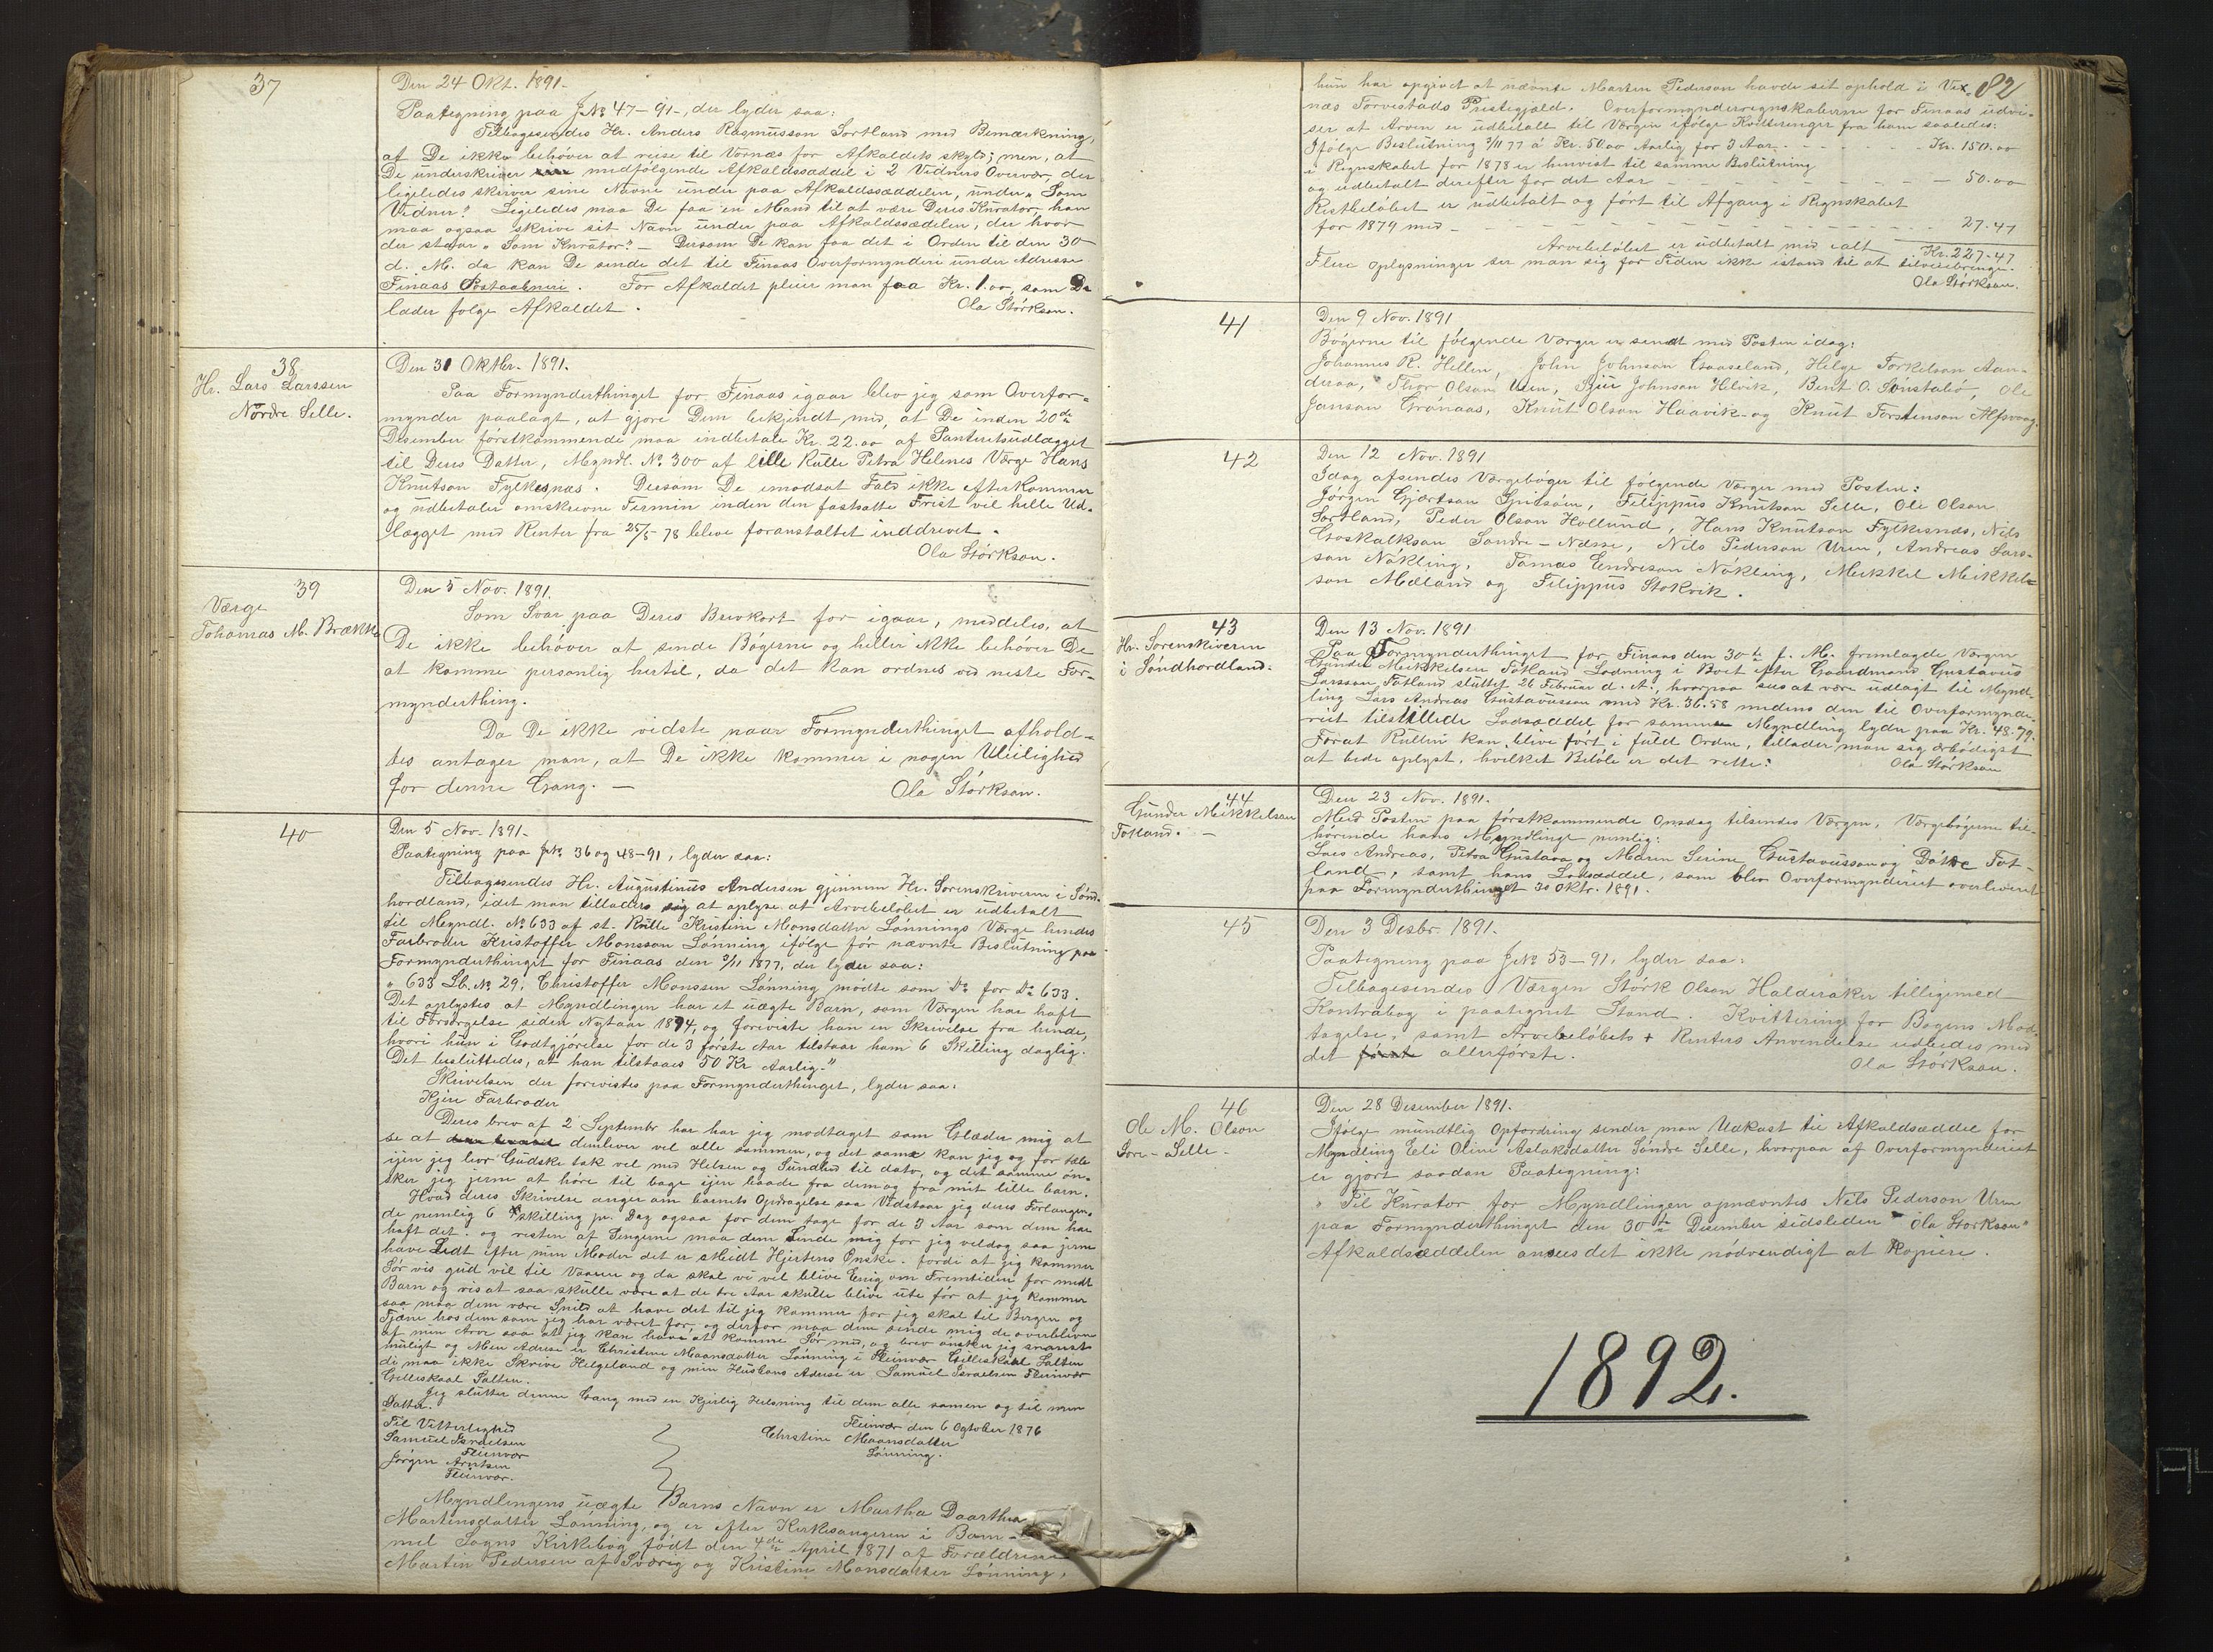 37
Den 24 Okt. 1891.
Paategning paa J№ 47-91-, der lyder saa:
Tilbagesendes Hr. Anders Rasmusson Sortland med Bemærkning,
at De ikke behøver at reise til Vornæs for Afkaldets skyld; men, at
De underskriver medfølgende Afkaldssæddel i 2 Vidners Overvær, der
ligeledes skriver sine Navne under paa Afkaldssæddelen, under „Som
Vidner." Ligeledes maa De faa en Mand til at være Deres Kurator, han
maa ogsaa skrive sit Navn under paa Afkaldssædelen, der hvor
der staar „Som Kurator." – Dersom De kan faa det i Orden til den 30
d. M. da kan De sende det til Finaas Overformynderi under Adresse
Finaas Postaabneri. For Afkaldet pleier man faa Kr. 1.00, som De
lader følge Afkaldet.
Ola Störkson.
38
Hr. Lars Larssen
Nordre Selle.
Den 31 Oktbr. 1891.
Paa Formynderthinget for Finaas igaar blev jeg som Overfor-
mynder paalagt, at gjøre Dem bekjendt med, at De inden 20de
Desember førstkommende maa indbetale Kr. 22.00 af Panteretsudlægget
til Deres Datter, Myndl. № 300 af lille Rulle Petra Helenes Værge Hans
Knutson Fylkesnæs. Dersom De imodsat Fald ikke efterkommer
og udbetaler omskrevne Termin inden den fastsatte Frist vil hele Ud-
lægget med Renter fra 25/5-78 blive foranstaltet inddrevet.
Ola Störkson.
39
Værge
Tohamas M. Brække
Den 5 Nov. 1891.
Som Svar paa Deres Brevkort for igaar, meddeles, at
De ikke behøver at sende Bøgerne og heller ikke behøver De
at komme personlig hertil, da det kan ordnes ved neste For-
mynderthing.
Da De ikke vidste naar Formynderthinget afhold-
tes antager man, at De ikke kommer i nogen Uleilighed
for denne Gang. –
Ola Störkson.
40
Den 5 Nov. 1891.
Paategning paa J№ 36 og 48-91, lyder saa:
Tilbagesendes Hr. Augustinus Andersen gjennem Hr. Sorenskriveren i Sønd-
hordland, idet man tillader sig at oplyse at Arvebeløbet er udbetalt
til Myndl. № 633 af st. Rulle Kristine Monsdatter Lønnings Værge hendes
Farbroder Kristoffer Monsson Lønning ifølge før nævnte Beslutning paa
Formynderthinget for Finaas den 3/11 1877, der lyder saa:
„633 Lb. № 29, Christoffer Monssen Lønning mødte som Do for Do 633.
Det oplystes at Myndlingen har et uægte Barn, som Værgen har haft
til Forsørgelse siden Nytaar 1874, og foreviste han en Skrivelse fra hende,
hvori hun i Godtgjørelse for de 3 første Aar tilstaar ham 6 Skilling daglig.
Det besluttedes, at han tilstaaes 50 Kr Aarlig."
Skrivelsen der forevistes paa Formynderthinget, lyder saa:
Kjere Farbroder
Deres brev af 2 Septembr har har jeg modtaget som Glæder mig at
se at demlever vel alle sammen, og det same kan jeg og for tæle
ijen jeg lever Gudske tak vel med Helsen og Sundhed til dato, og det samme øn-
sker jeg jerne at høre til bage ijen baade fra dem og fra mit lille barn.
Hvad deres Skrivelse anger om barnets Opdragelse saa Vedstaar jeg deres Forlangen-
de nemlig 6 skilling pr. Dag ogsaa for dem tage for de 3 Aar som dem har
haft det. og resten af Pengerne maa dem Sende mig for jeg veldog saa jerne
have Lidt efter min Moder det er stedt Hjertens Ønske. fordi at jeg kommer
Sør vis gud vil til Vaaren og da skal vi vel blive Enig om Fremtiden for medt
Barn og vis at saa skulle være at de tre Aar skulde blive ute før at jeg kommer
saa maa dem være Snild at have det til jeg kommer for jeg skal til Bergen og
Tjæne hos dem som jeg har været før, og derfor maa dem sende mig de overbleven
af min Arve saa at jeg kan have at komme Sør med, og brev ønsker jeg snarest
muligt og Men Adrese er Christine Maansdatter Lønning i Fleinvær Gilleskaal Salten
di maa ikke Skrive Helgeland og min Husbons Adrese er Samuel Israelsen Fleinvær
Gilleskaal Salten.
Jeg slutter denne Gang med en Kjerlig Helsning til dem alle samen og til men
Datter.
Fleinvær den 6 Ogtober 1876
Christine Maansdatter
Lønning.
Til Vitterlighed
Samuel Israelsen
Fleinvær
Jørgen Arntsen
Fleinvær.
Myndlingens uægte Barns Navn er Martha Daarthea
Martensdatter Lønning, og er efter Kirkesangeren i Bøm-
mel Sogns Kirkebog født den 4de April 1871 af Forældrene
Martin Pedersen af Sværig og Kristine Monsdatter Lønning,
82
hun har opgivet at nævnte Marten Pederson havde sit ophold i Vex-
næs Torvestads Prestegjæld. Overformynderregnskaberne for Finaas udvi-
ser at Arven er udbetalt til Værgen ifølge Kvitteringer fra ham saaledes:
Ifølge Beslutning 3/11 77 á Kr. 50.00 Aarlig for 3 Aar - - - Kr. 150.00
i Regnskabet for 1878 er henvist til samme Beslutning
og udbetalt derefter for det Aar - - - 50.00
Restbeløbet er udbetalt og ført til Afgang i Regnskabet
for 1879 med - - - 27.47
Arvebeløbet er udbetalt med ialt Kr. 227.47
Flere oplysninger ser man sig for Tiden ikke istand til at tilveiebringe.
Ola Störkson.
41
Den 9 Nov. 1891
Bøgerne til følgende Værger er sendt med Posten idag:
Johannes R. Hellen, John Johnson Gaaseland, Helge Torkelson Aan-
deraa, Thor Olson Uren, Sjur Johnson Helvik, Bent O. Sönstabö, Ole
Janson Grönaas, Knut Olson Haavik og Knut Torstenson Alfsvaag.
42
Den 12 Nov. 1891
Idag afsendes Værgebøger til følgende Værger med Posten:
Jørgen Gjærtson Spissøen, Filippus Knutson Selle, Ole Olson
Sortland, Peder Olson Hollund, Hans Knutson Fylkesnæs, Nils
Goskalkson Søndre-Næsse, Nils Pederson Uren, Andreas Lars-
son Nökling, Tomas Endreson Nökling, Meikkel Meikkel-
son Mæland og Filippus Stokvik.
43
Hr. Sorenskriveren
i Söndhordland.
Den 13 Nov. 1891
Paa Formynderthinget for Finaas den 30te f. M. fremlagde Værgen
Gunder Meikkelsen Totland Lodning i Boet efter Gaardmand Gustavus
Larsson Totland sluttet 26 Februar d. A., hvorpaa sees at være udlagt til Mynd-
ling Lars Andreas Gustavusson med Kr. 36.58 medens den til Overformynde-
riet tilstillede Lodsæddel for samme Myndling lyder paa Kr. 48.79.
Forat Rullen kan blive ført i fuld Orden, tillader man sig ærbødigst
at bede oplyst, hvilket Beløb er det rette:
Ola Störkson
44
Gunder Meikkelson
Totland. –
Den 23 Nov. 1891.
Med Posten paa førstkommende Onsdag tilsendes Værgen, Værgebøgerne til-
hørende hans Myndlinge nemlig:
Lars Andreas, Petra Gustava og Maren Serine Gustavusson og Døtre Tot-
land, samt hans Lodsæddel, som blev Overformynderiet overleveret
paa Formynderthinget 30 Oktr. 1891.
45
Den 3 Desbr. 1891.
Paategning paa J№ 53-91, lyder saa:
Tilbagesendes Værgen Störk Olson Halderaker tilligemed
Kontrabog i paategnet Stand. Kvittering for Bogens Mod-
tagelse, samt Arvebeløbets + Renters Anvendelse udbedes med
det første allerførste.
Ola Störkson.
46
Ole M. Olson
Søre-Selle.
Den 28 Desember 1891.
Ifølge mundtlig Opfordring sender man Udkast til Afkaldsæddel for
Myndling Eli Oline Aslaksdatter Søndre Selle, hvorpaa af Overformynderiet
er gjort saadan Paategning:
„Til Kurator for Myndlingen opnævntes Nils Pederson Uren
paa Formynderthinget den 30te Desember sidsleden Ola Störkson"
Afkaldsæddelen ansees det ikke nødvendigt at kopiere.
1892.